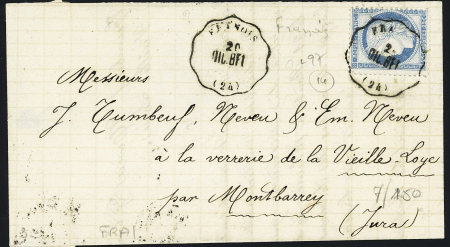 FRANOIS
20
DIJ. BF1
(24)
FRA
2
DIJ. BF1
(24)
197
14
Messieurs
J. Tumbeuf, Neveu & Em. Neveu
à la verrerie de la Vieille Loye
par Montbarrey
7/150
(Jura)
FRA